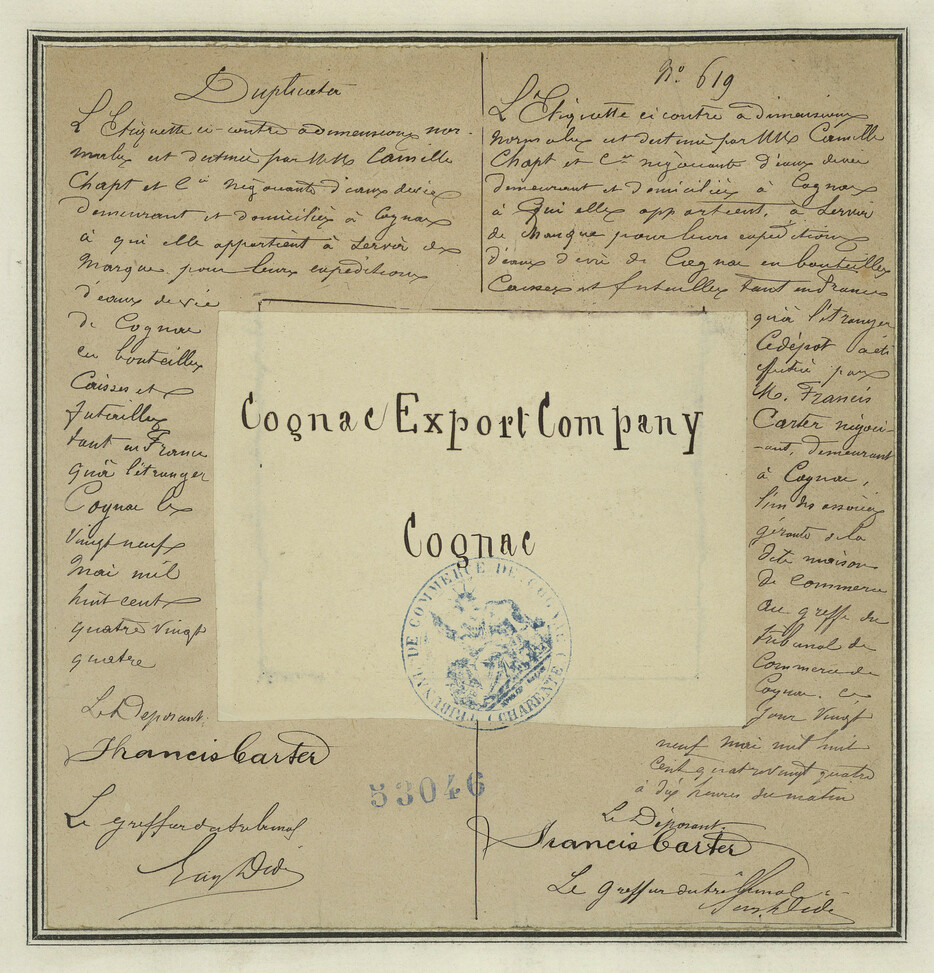 Duplicata
L'Etiquette ci-contre à dimensions nor-
males est destinée par MM Camille
Chapt et Cie négociants d'eaux de vie
demeurant et domiciliés à Cognac
à qui elle appartient à servir de
Marque pour leurs expéditions
d'eaux de vie
de Cognac
en bouteilles
Caisses et
futailles
tant en France
qu'à l'étranger
Cognac le
Vingt neuf
Mai mil
huit cent
quatre vingt
quatre
Le Déposant
Francis Carter
Le greffier du tribunal
No 619
L'Etiquette ci contre à dimensions
normales est destinée par MM Camille
Chapt et Cie négociants d'eaux de vie
demeurant et domiciliés à Cognac
à qui elle appartient, à servir
de Marque pour leurs expéditions
d'eaux de vie de Cognac en bouteilles
Caisses et futailles tant en France
qu'à l'étranger
Ce dépôt a été
effectué par
M. Francis
Carter négoci-
-ant, demeurant
à Cognac,
l'un des associés
gérants de la
dite maison
de Commerce
au greffe du
tribunal de
Commerce de
Cognac, ce
jour Vingt
neuf mai mil huit
cent quatre vingt quatre
à dix heures du matin
Le Déposant
Francis Carter
Le greffier du tribunal
Cognac Export Company
Cognac
TRIBUNAL DE COMMERCE DE COGNAC (CHARENTE)
53046